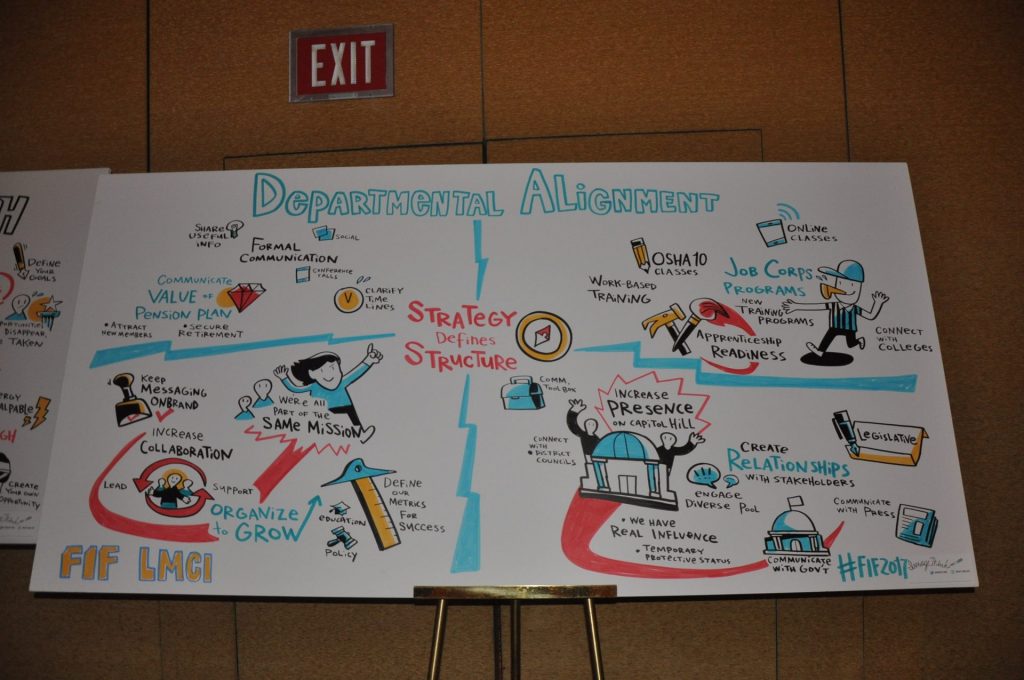 EXIT
DEPARTMENTAL ALIGNMENT
SHARE
USEFUL
INFO
SOCIAL
FORMAL
COMMUNICATION
CONFERENCE
CALLS
COMMUNICATE
VALUE OF
PENSION PLAN
• ATTRACT
NEW MEMBERS
• SECURE
RETIREMENT
CLARIFY
TIME
LINES
STRATEGY
DEFINES
STRUCTURE
OSHA 10
CLASSES
ONLINE
CLASSES
WORK-BASED
TRAINING
JOB CORPS
PROGRAMS
NEW
TRAINING
PROGRAMS
APPRENTICESHIP
READINESS
CONNECT
WITH
COLLEGES
KEEP
MESSAGING
ONBRAND
WE'RE ALL
PART OF THE
SAME MISSION
INCREASE
COLLABORATION
LEAD
SUPPORT
ORGANIZE
TO GROW
EDUCATION
POLICY
DEFINE
OUR
METRICS
FOR
SUCCESS
COMM.
TOOLBOX
INCREASE
PRESENCE
ON CAPITOL HILL
CONNECT
WITH
• DISTRICT
COUNCILS
LEGISLATIVE
CREATE
RELATIONSHIPS
WITH STAKEHOLDERS
ENGAGE
DIVERSE POOL
COMMUNICATE
WITH PRESS
• WE HAVE
REAL INFLUENCE
• TEMPORARY
PROTECTIVE STATUS
COMMUNICATE
WITH GOV'T
FIF LMCI
#FIF2017
H
DEFINE
YOUR
GOALS
DISAPPEAR,
TAKEN
CREATE
YOUR OWN